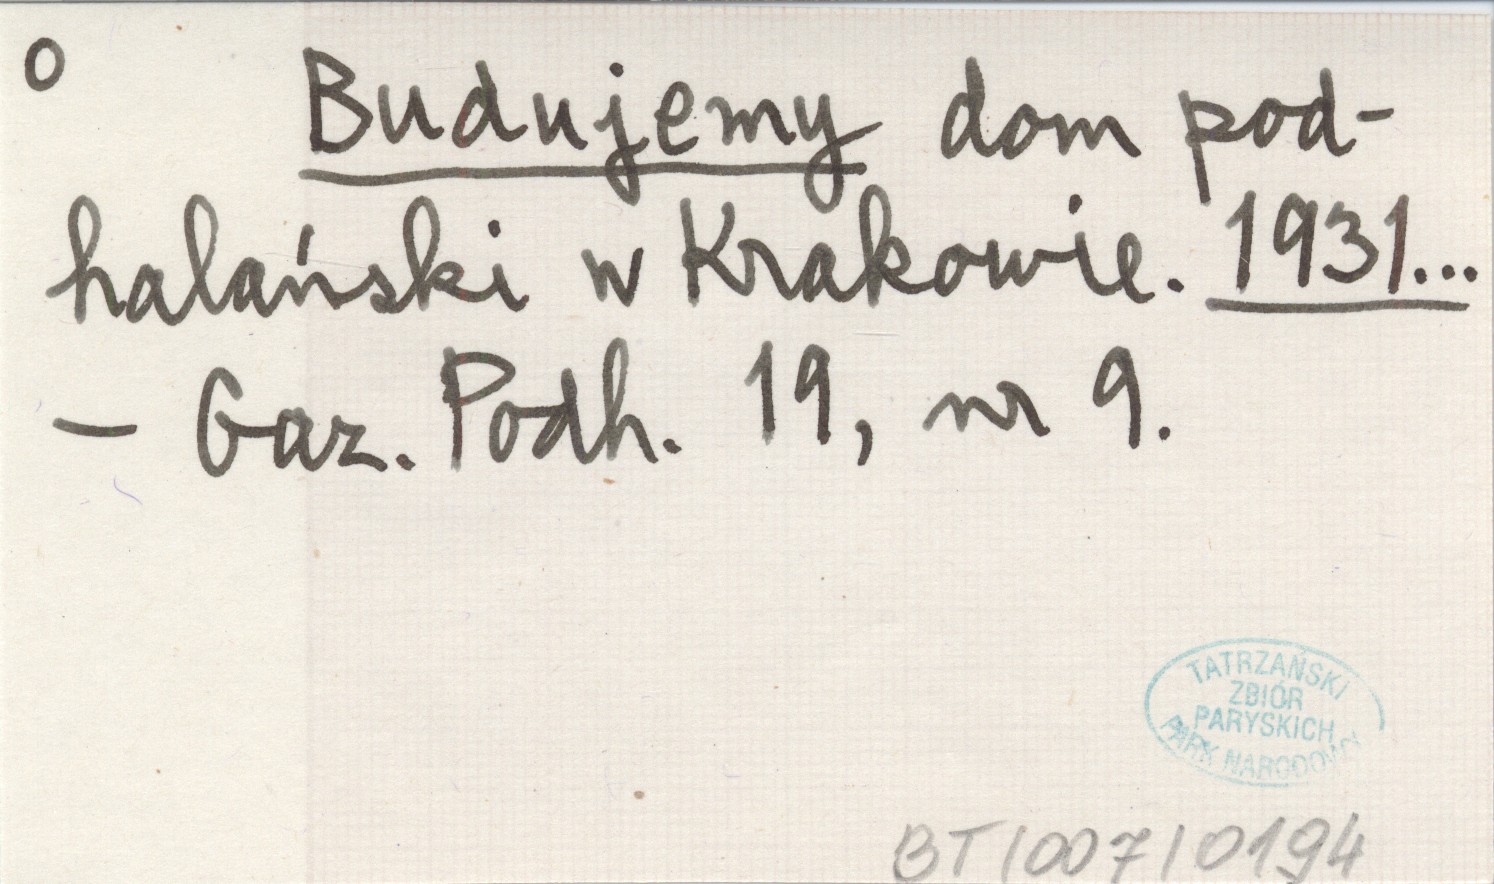 o Budujemy dom pod-
halański w Krakowie. 1931...
— Gaz. Podh. 19, nr 9.
TATRZAŃSKI
ZBIÓR
PARYSKICH
PARK NARODOWY
BT/007/0194